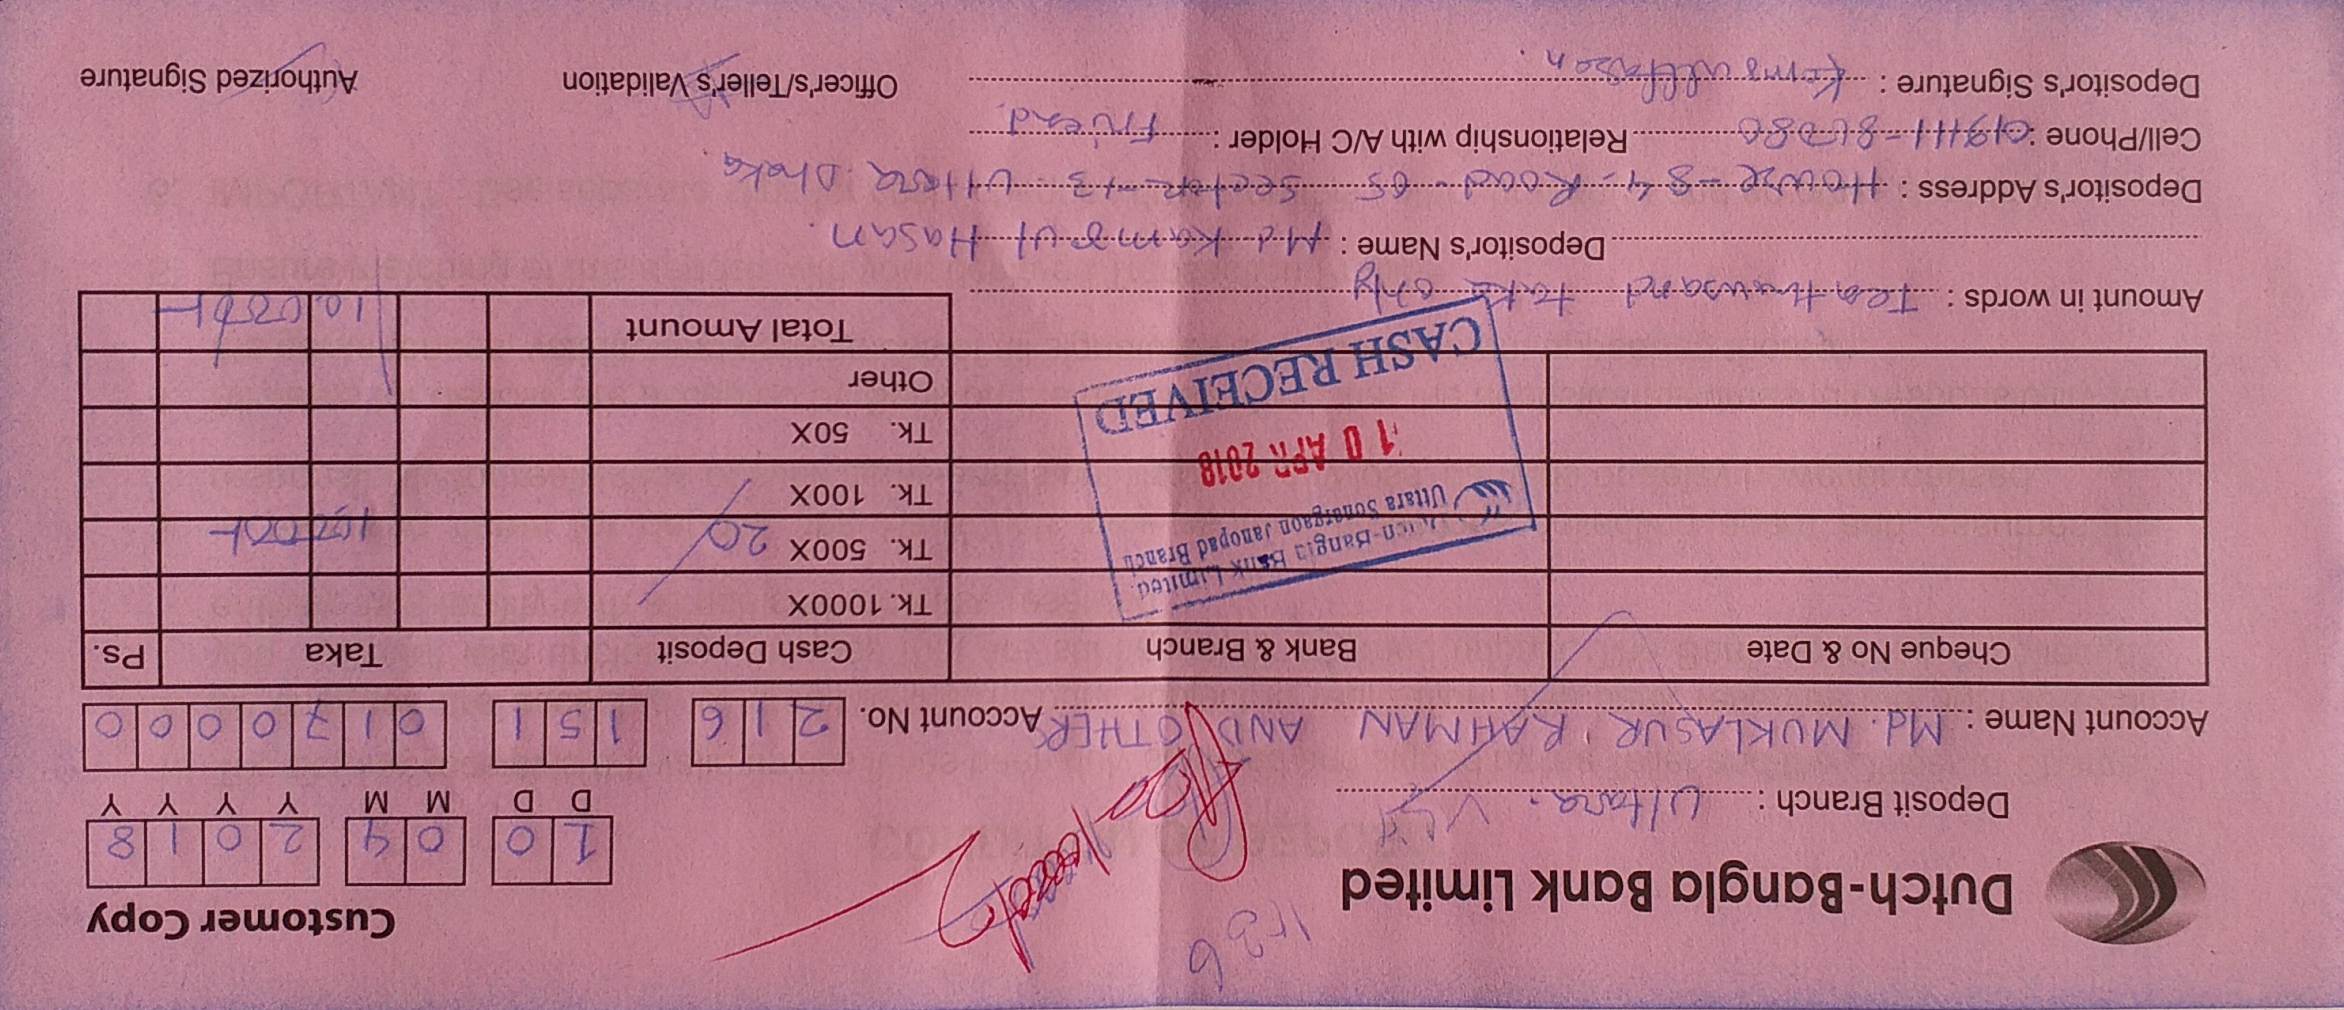 Dutch-Bangla Bank Limited
Customer Copy
1 0 0 4 2 0 1 8
D D M M Y Y Y Y
Deposit Branch : Uttara.
Account Name : Md. MUKLASUR RAHMAN AND OTHERS Account No. 2 1 6 1 5 1 0 1 7 0 0 0 0
Cheque No & Date Bank & Branch Cash Deposit Taka Ps.
Tk. 1000X
Tk. 500X 20 10,000/-
Tk. 100X
Tk. 50X
Other
Total Amount 10,000/-
Dutch-Bangla Bank Limited.
Uttara Sonargaon Janopad Branch
10 APR 2018
CASH RECEIVED
Amount in words : Ten thousand taka only
Depositor's Name : Md Kamrul Hasan.
Depositor's Address : House-84, Road-05 Sector-13 Uttara Dhaka.
Cell/Phone : Relationship with A/C Holder : Friend.
Depositor's Signature : Kamrul Hasan.
Officer's/Teller's Validation
Authorized Signature